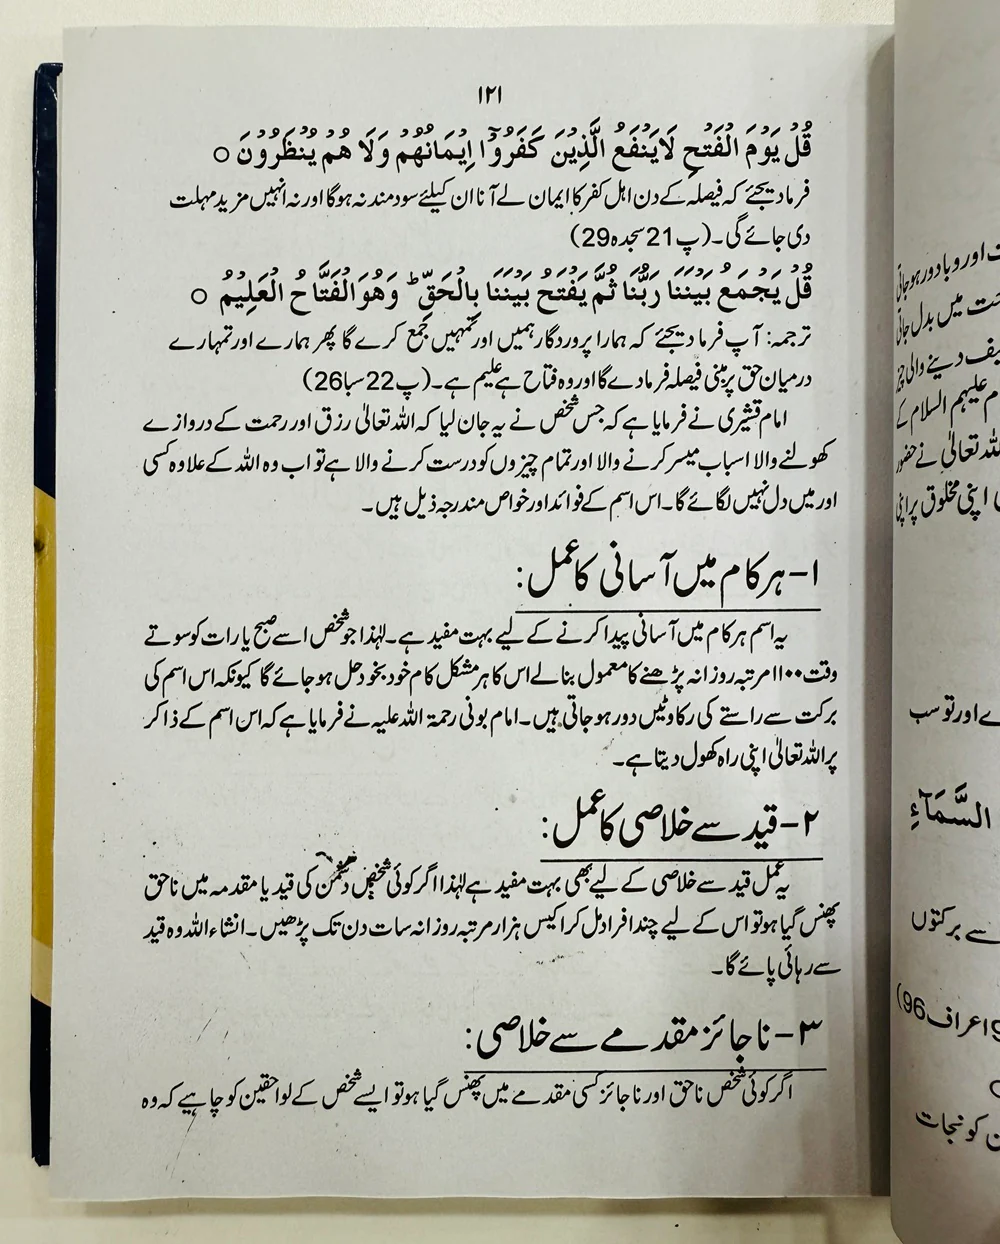 ۱۲۱
قُلْ يَوْمَ الْفَتْحِ لَايَنْفَعُ الَّذِيْنَ كَفَرُوْٓا اِيْمَانُهُمْ وَلَا هُمْ يُنْظَرُوْنَ ○
فرما دیجئے کہ فیصلہ کے دن اہل کفر کا ایمان لے آنا ان کیلئے سود مند نہ ہوگا اور نہ انہیں مزید مہلت
دی جائے گی۔ (پ 21 سجدہ 29)
قُلْ يَجْمَعُ بَيْنَنَا رَبُّنَا ثُمَّ يَفْتَحُ بَيْنَنَا بِالْحَقِّ ؕ وَهُوَ الْفَتَّاحُ الْعَلِيْمُ ○
ترجمہ: آپ فرما دیجئے کہ ہمارا پروردگار ہمیں اور تمہیں جمع کرے گا پھر ہمارے اور تمہارے
درمیان حق پر مبنی فیصلہ فرما دے گا اور وہ فتاح ہے علیم ہے۔ (پ 22 سبا 26)
امام قشیری نے فرمایا ہے کہ جس شخص نے یہ جان لیا کہ اللہ تعالیٰ رزق اور رحمت کے دروازے
کھولنے والا اسباب میسر کرنے والا اور تمام چیزوں کو درست کرنے والا ہے تو اب وہ اللہ کے علاوہ کسی
اور میں دل نہیں لگائے گا۔ اس اسم کے فوائد اور خواص مندرجہ ذیل ہیں۔
۱- ہر کام میں آسانی کا عمل:
یہ اسم ہر کام میں آسانی پیدا کرنے کے لیے بہت مفید ہے۔ لہٰذا جو شخص اسے صبح یا رات کو سوتے
وقت ۱۱۰۰ مرتبہ روزانہ پڑھنے کا معمول بنا لے اس کا ہر مشکل کام خود بخود حل ہو جائے گا کیونکہ اس اسم کی
برکت سے راستے کی رکاوٹیں دور ہو جاتی ہیں۔ امام بونی رحمۃ اللہ علیہ نے فرمایا ہے کہ اس اسم کے ذاکر
پر اللہ تعالیٰ اپنی راہ کھول دیتا ہے۔
۲- قید سے خلاصی کا عمل:
یہ عمل قید سے خلاصی کے لیے بھی بہت مفید ہے لہٰذا اگر کوئی شخص دشمن کی قید یا مقدمہ میں ناحق
پھنس گیا ہو تو اس کے لیے چند افراد مل کر اکیس ہزار مرتبہ روزانہ سات دن تک پڑھیں۔ انشاء اللہ وہ قید
سے رہائی پائے گا۔
۳- ناجائز مقدمے سے خلاصی:
اگر کوئی شخص ناحق اور ناجائز کسی مقدمے میں پھنس گیا ہو تو ایسے شخص کے لواحقین کو چاہیے کہ وہ
ت اور وبا دور ہو جاتی
میں بدل جاتی
دینے والی چیز
علیہم السلام کے
اللہ تعالیٰ نے حضور
اپنی مخلوق پر اپنی
ے اور تو سب
السَّمَآءِ
سے برکتوں
اعراف 96)
کو نجات